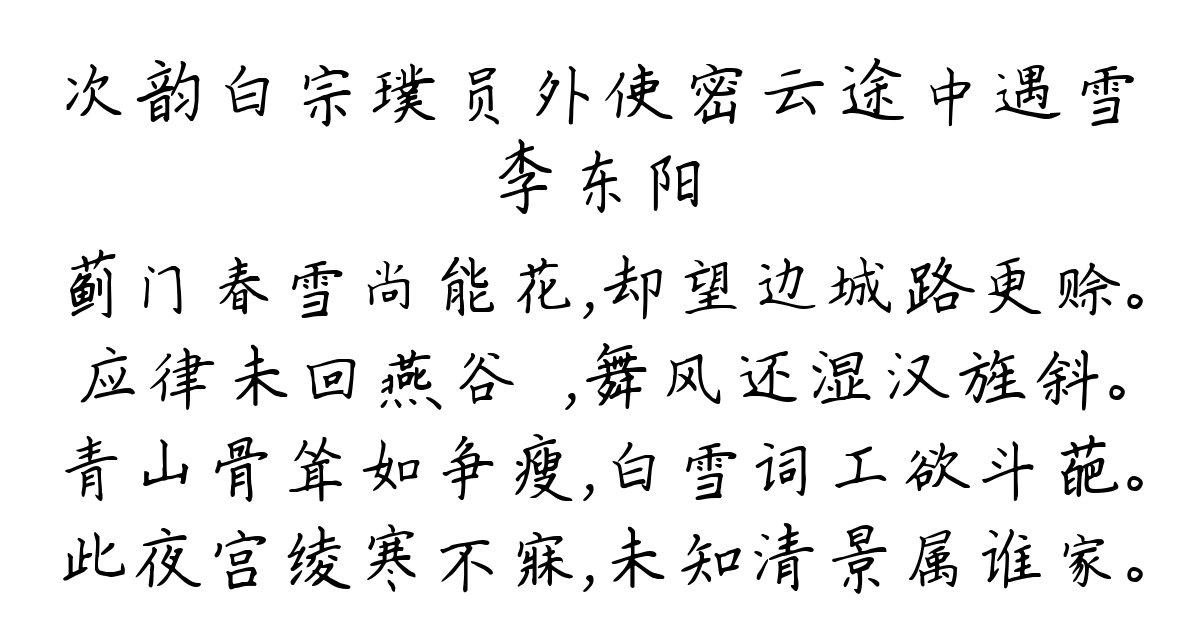 次韵白宗璞员外使密云途中遇雪
李东阳
蓟门春雪尚能花,却望边城路更赊。
应律未回燕谷 ,舞风还湿汉旌斜。
青山骨耸如争瘦,白雪词工欲斗葩。
此夜宫绫寒不寐,未知清景属谁家。